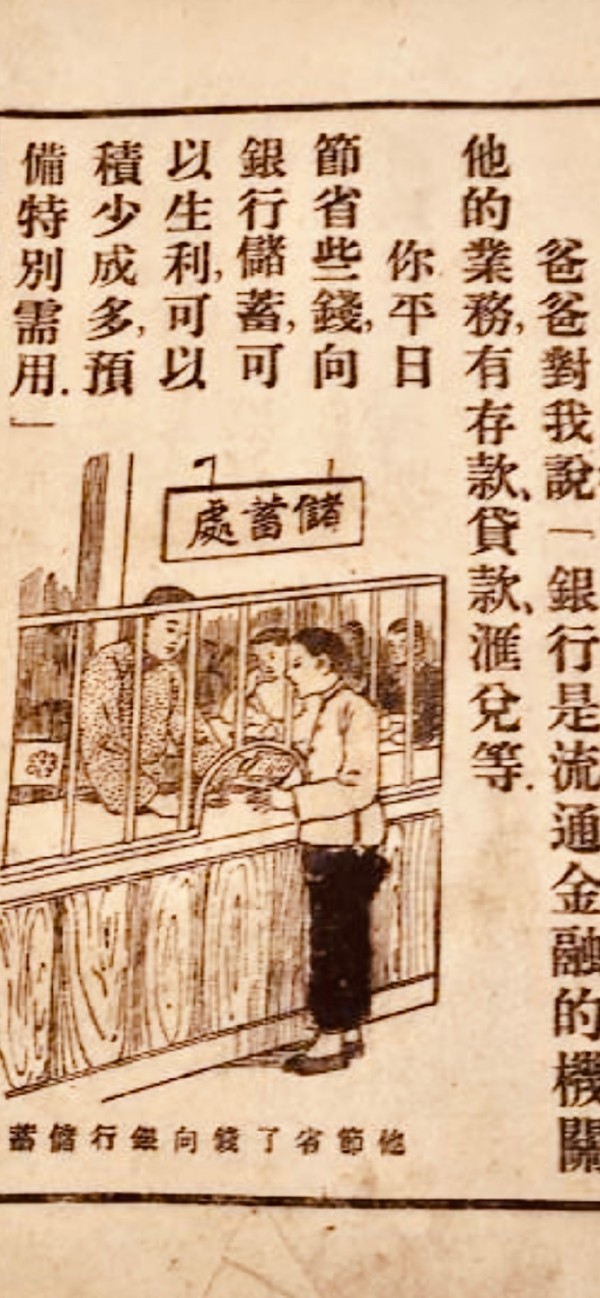 爸爸對我說「銀行是流通金融的機關
他的業務,有存款、貸款、滙兌等.
你平日
節省些錢,向
銀行儲蓄,可
以生利,可以
積少成多,預
備特別需用.」
儲蓄處
他節省了錢向銀行儲蓄